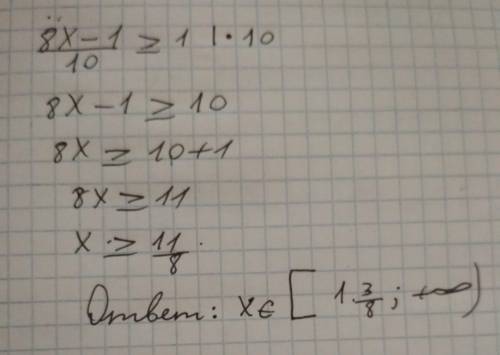 (8x-1)/10 ≥ 1 | · 10
8x - 1 ≥ 10
8x ≥ 10+1
8x ≥ 11
x ≥ 11/8
Ответ: x∈ [1 3/8; +∞)